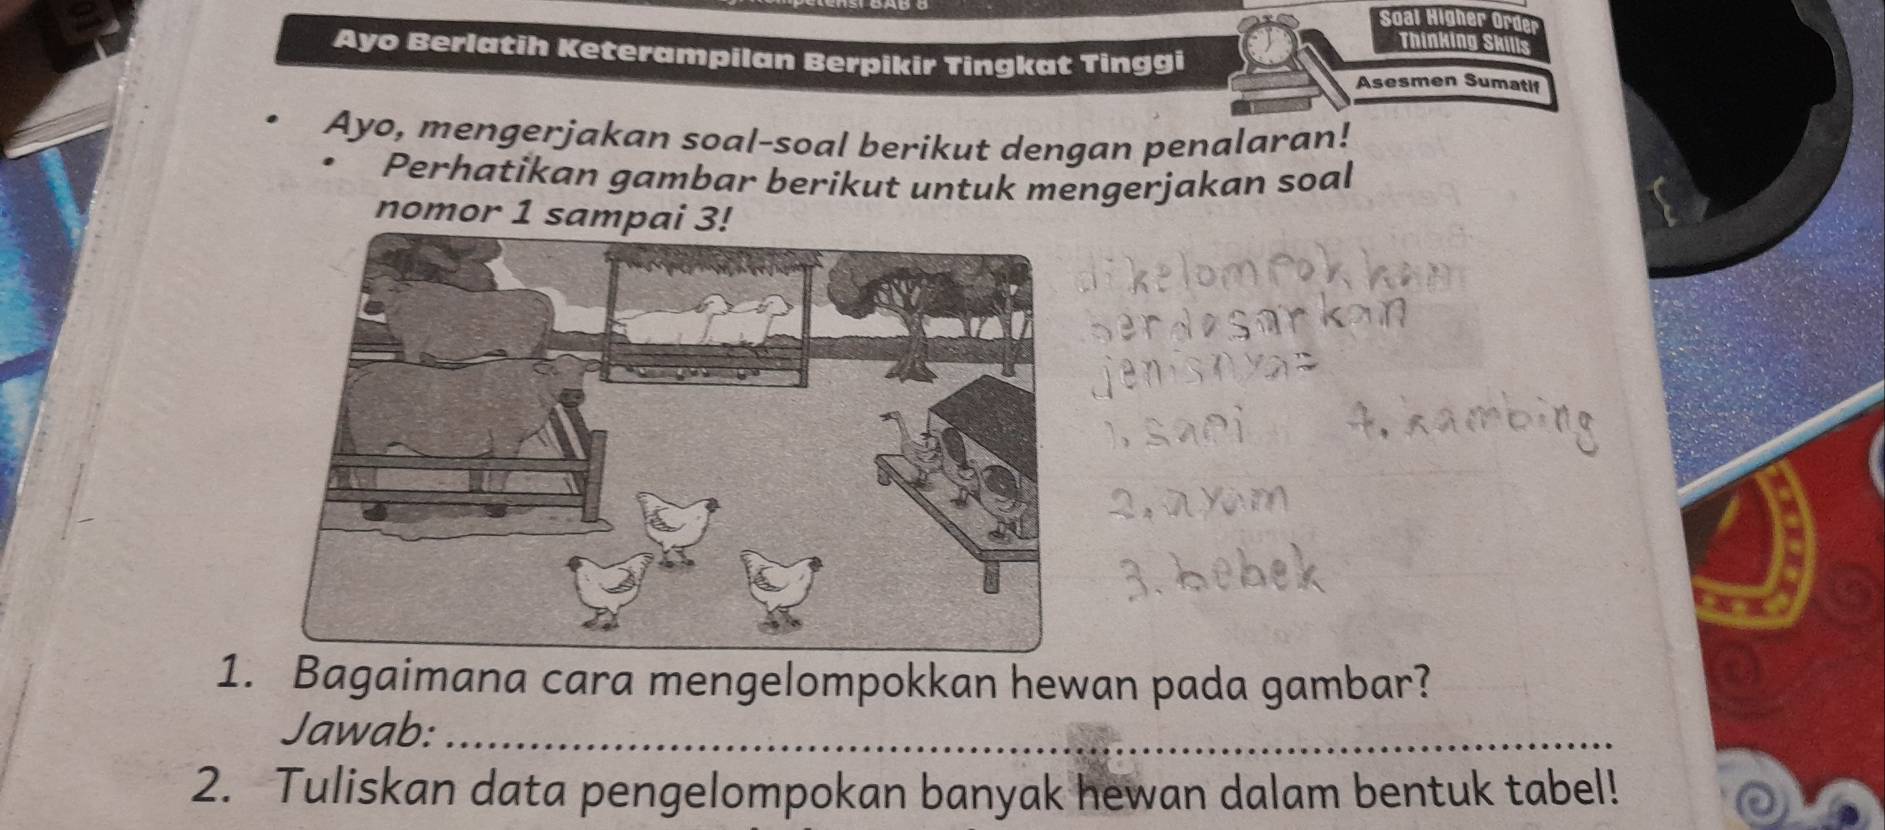 Ayo Berlatih Keterampilan Berpikir Tingkat Tinggi
Soal Higher Order
Thinking Skills
Asesmen Sumatif
• Ayo, mengerjakan soal-soal berikut dengan penalaran!
• Perhatikan gambar berikut untuk mengerjakan soal
nomor 1 sampai 3!
dikelompokkan
berdasarkan
jenisnya=
1. sapi
4. kambing
2. ayam
3. bebek
1. Bagaimana cara mengelompokkan hewan pada gambar?
Jawab: ....................................................................................
2. Tuliskan data pengelompokan banyak hewan dalam bentuk tabel!